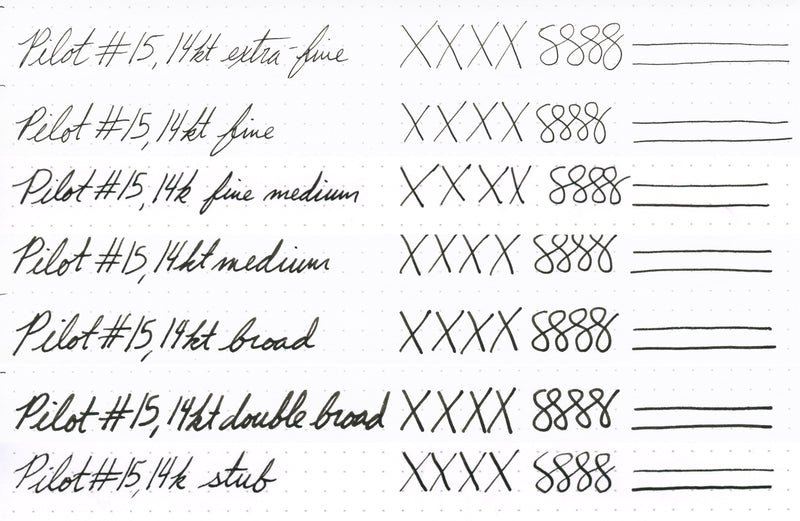 Pilot #15, 14kt extra-fine XXXX 8888
Pilot #15, 14kt fine XXXX 8888
Pilot #15, 14k fine medium XXXX 8888
Pilot #15, 14kt medium XXXX 8888
Pilot #15, 14kt broad XXXX 8888
Pilot #15, 14kt double broad XXXX 8888
Pilot #15, 14k stub XXXX 8888